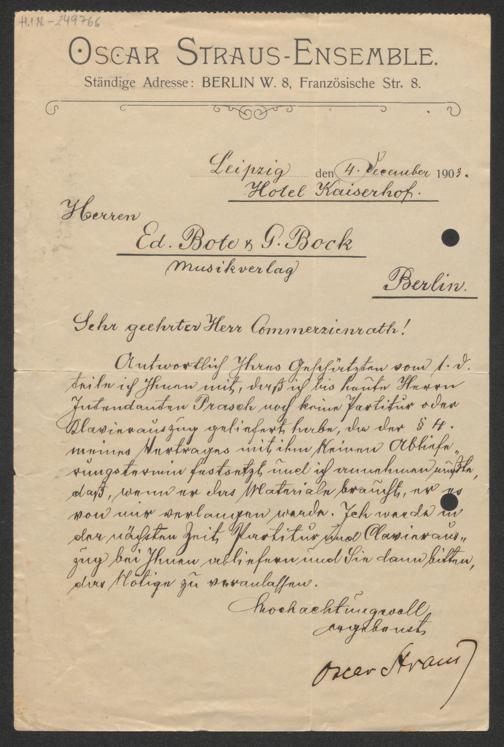 H.I.N.-249766
OSCAR STRAUS-ENSEMBLE.
Ständige Adresse: BERLIN W. 8, Französische Str. 8.
Leipzig den 4. December 1903.
Hotel Kaiserhof.
Herren
Ed. Bote & G. Bock
Musikverlag
Berlin.
Sehr geehrter Herr Commerzienrath!
Antwortlich Ihres Geschätzten vom 1. d.
teile ich Ihnen mit, daß ich bis heute Herrn
Intendanten Prasch noch keine Partitur oder
Klavierauszug geliefert habe, da der § 4.
meines Vertrages mit ihm keinen Abliefe„
rungstermin festsetzt und ich annehmen mußte,
daß, wenn er das Materiale braucht, er es
von mir verlangen werde. Ich werde in
der nächsten Zeit Partitur und Clavieraus„
zug bei Ihnen abliefern und Sie dann bitten,
das Nötige zu veranlassen.
Hochachtungsvoll
ergebenst
Oscar Straus